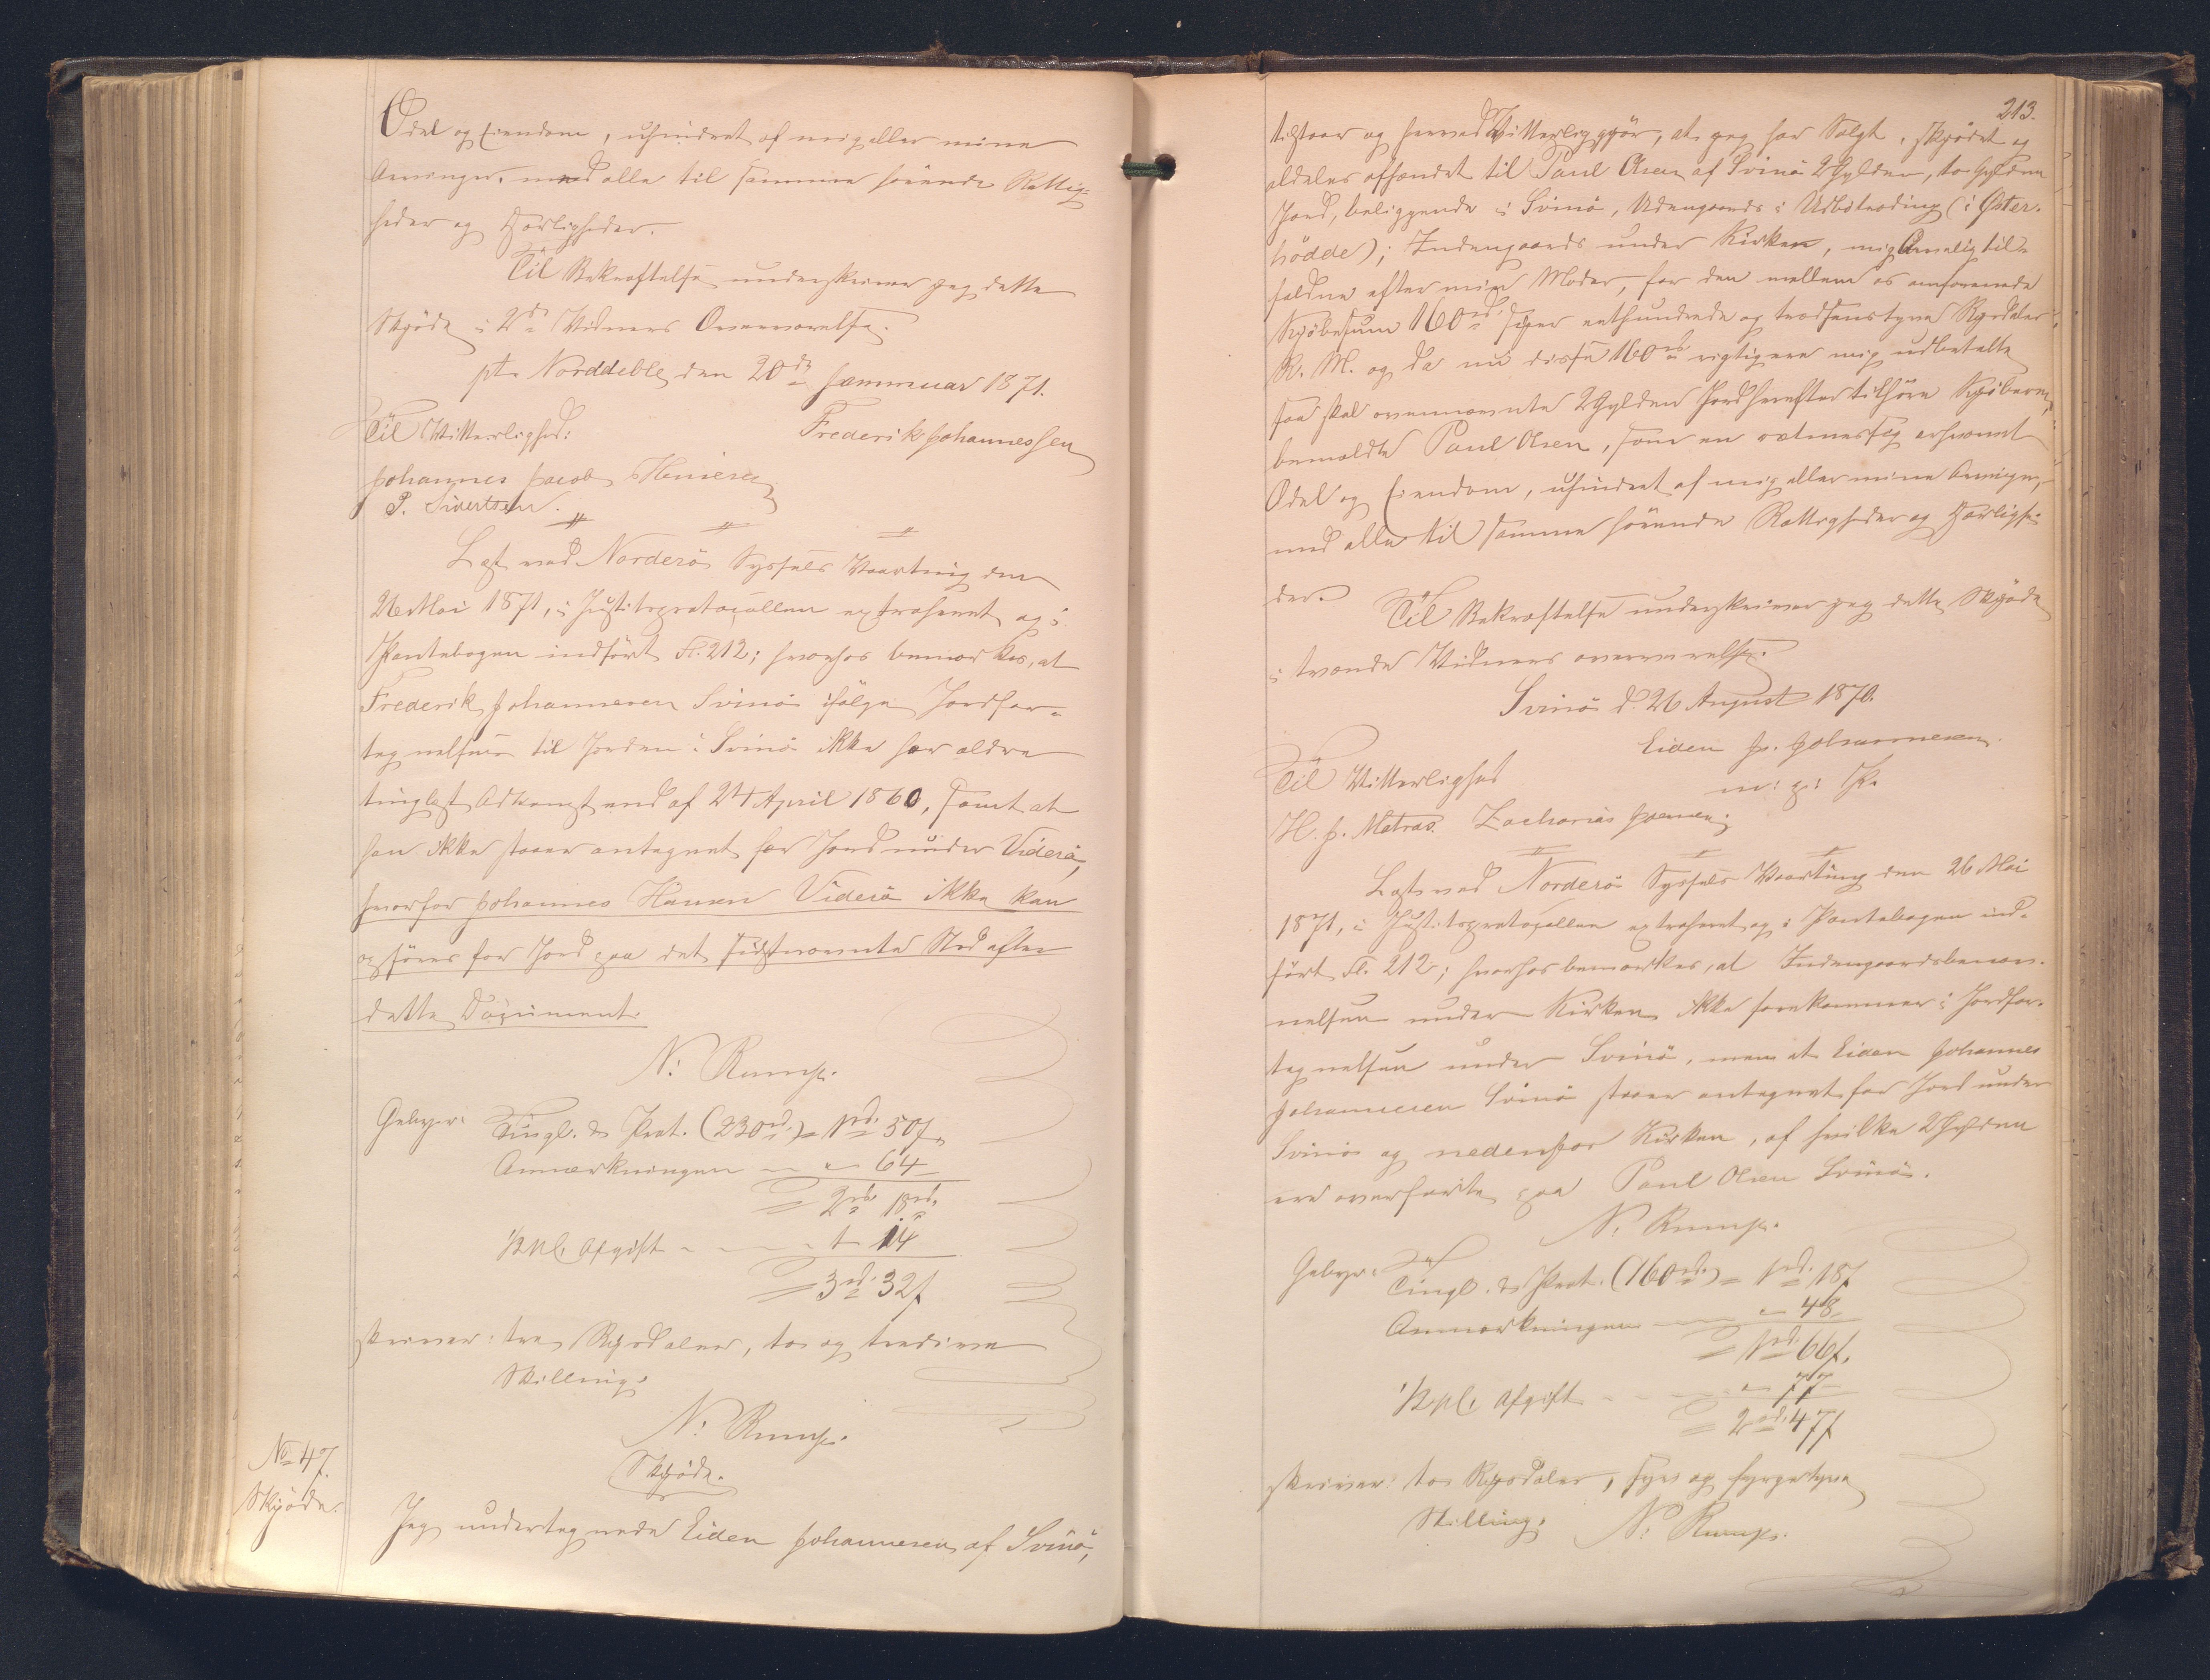 Odel og Eiendom, uhindret af mig eller mine
Arvinger, med alle til samme hørende Rettig-
heder og Herligheder.
Til Bekræftelse underskriver jeg dette
Skjøde i 2de Vidners Overværelse.
pt. Norddeble den 20de Januar 1871.
Til Vitterlighed:
Frederik Johannessen
Johannes Jacob
P. Sivertsen.
Læst ved Norderø Syssels Vaarting den
26 Mai 1871, i Justitsprotocollen extraheret og i
Pantebogen indført Fl. 212; hvorhos bemærkes, at
Frederik Johannesen Svinø ifølge Jordfor-
tegnelsen til Jorden i Svinø ikke har ældre
tinglæst Adkomst end af 24 April 1860, samt at
han ikke staaer antegnet for Jord under Viderø,
hvorfor Johannes Hansen Viderø ikke kan
opføres for Jord paa det sidstnævnte Sted efter
dette Document.
N. Rump.
Gebyr: Tingl. & Prot. (230rd.) = 1rd. 50f
Anmærkningen - " 64
= 2rd. 18
1/2 pCt. Afgift - - 1 - 14
= 3rd. 32f
skriver: tre Rigsdaler, to og tredive
Skilling.
N. Rump.
No 47.
Skjøde.
Skjøde.
Jeg undertegnede Eiden Johannesen af Svinø,
213.
tilstaaer og herved Vitterliggjør, at jeg har Solgt, skjødet og
aldeles afhændet til Paul Olsen af Svinø 2 Gylden, to Gylden
Jord, beliggende i Svinø, Udengaards i Udbølrading (i Øster-
hødde); Indengaards under Kirken, mig Arvelig til-
falden efter min Moder, for den mellem os omforenede
Kjøbesum 160rd. siger eethundrede og tredsenstyve Rigsdaler
R. M. og da nu disse 160rd. rigtig ere mig udbetalte
saa skal ovennævnte 2 Gylden Jord herefter tilhøre Kjøberen,
bemeldte Paul Olsen, som en retmessig erhvervet
Odel og Eiendom, uhindret af mig eller mine Arvinger,
med alle til samme hørende Rettigheder og Herlighe-
der.
Til Bekræftelse underskriver jeg dette Skjøde
i tvende Vidners overværelse.
Svinø d. 26 August 1870.
Eiden Jo. Johannesen.
m: p: P.
Til Vitterlighed
H. J. Matras. Zacharias Joensen.
Læst ved Norderø Syssels Vaarting den 26 Mai
1871, i Justitsprotocollen extraheret og i Pantebogen ind-
ført Fl. 212; hvorhos bemærkes, at Indengaardsbenæv-
nelsen under Kirken ikke forekommer i Jordfor-
tegnelsen under Svinø, men at Eiden Johannes
Johannesen Svinø staaer antegnet for Jord under
Svinø og nedenfor Kirken, af hvilke 2 Gylden
ere overførte paa Paul Olsen Svinø.
N. Rump.
Gebyr: Tingl. & Prot. (160rd.) = 1rd. 18f
Anmærkningen - " 48
= 1rd. 66f.
1/2 pCt. Afgift - - " 77
= 2rd. 47f
skriver: to Rigsdaler, syv og fyrgetyve
Skilling. N. Rump.